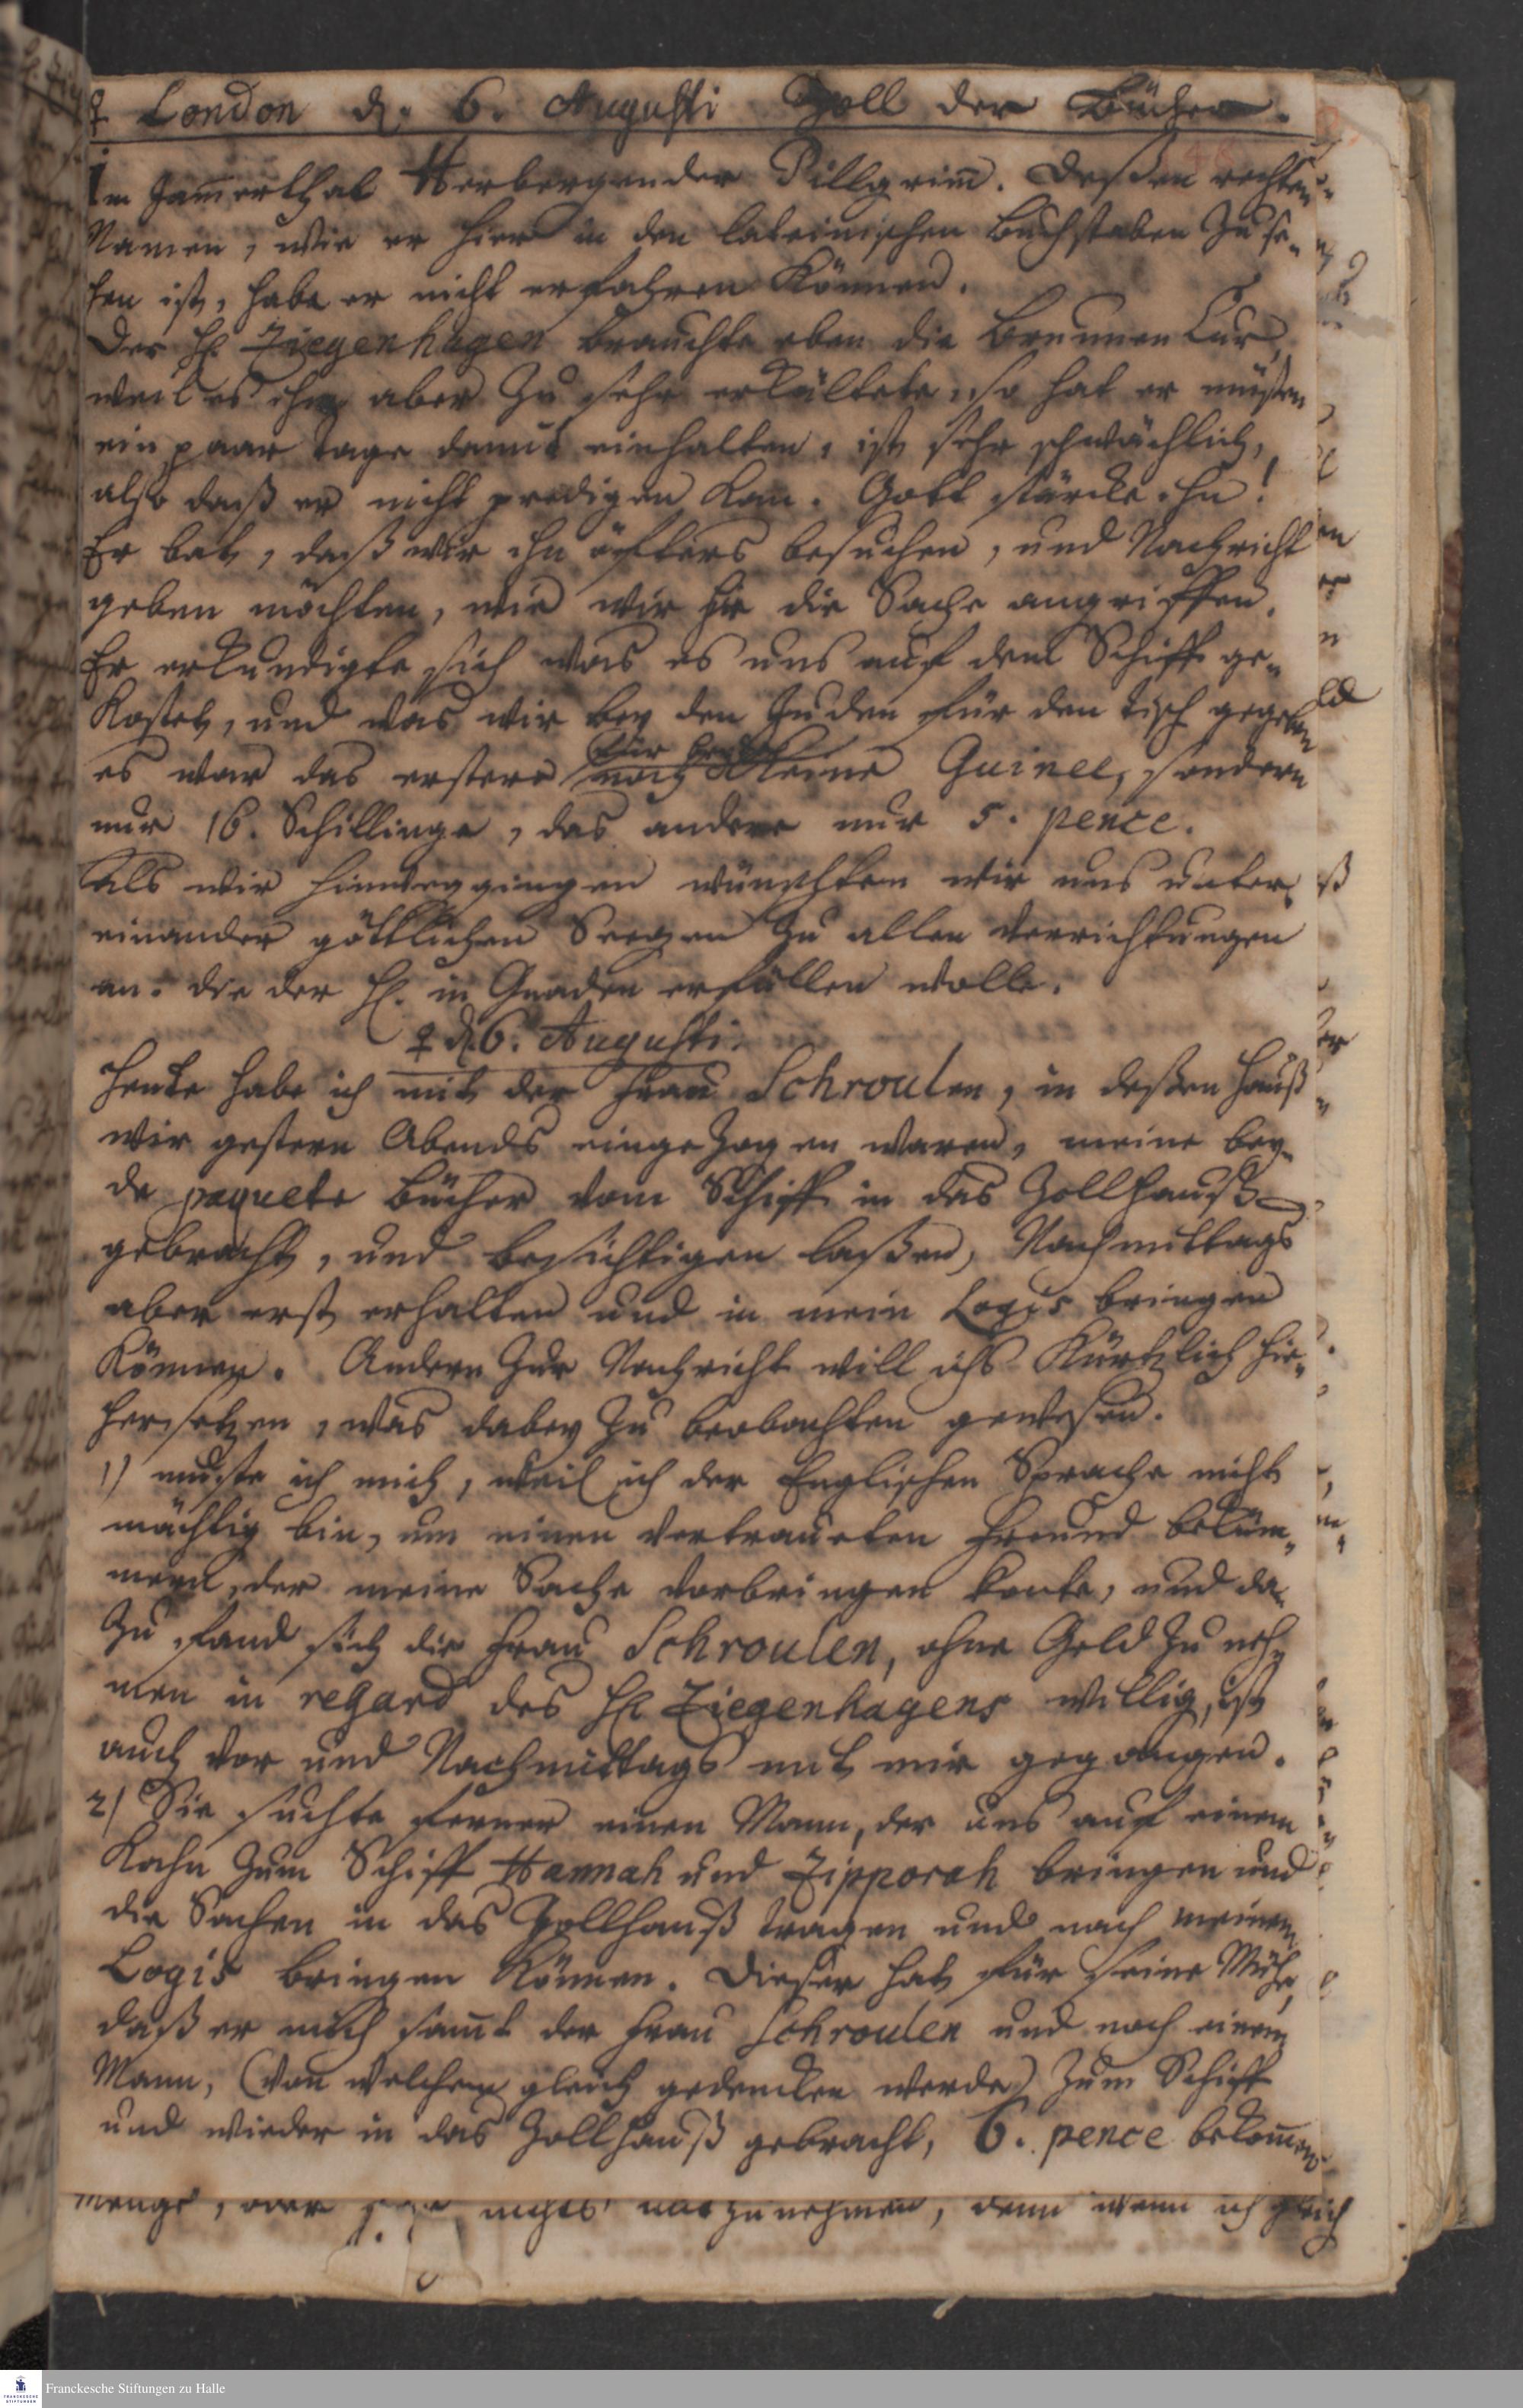 ♀ London d. 6. Augusti Zoll der Bücher.
Im Jam̅erthal Herbergender Pillgrim̅. Deßen rechten
Namen, wie er hier in den lateinischen Buchstaben zu se-
hen ist, habe er nicht erfahren können.
Der H. Ziegenhagen brauchte eben die Brunnen Cur,
weil es ihn aber zu sehr erkältete, so hat er müßen
ein paar Tage damit einhalten, ist sehr schwächlich,
also daß er nicht predigen kan. Gott stärcke ihn!
Er bat, daß wir ihn öfters besuchen, und Nachricht
geben möchten, wie wir hir die Sache angriffen.
Er erkundigte sich was es uns auf dem Schiff ge-
kostet, und was wir bey den Juden für den Tisch gegeben
für beyde
es war das erstere noch keine Guinee, sondern
nur 16. Schillinge, das andere nur 5. pence.
Als wir hinweggingen wünschten wir uns unter
einander göttlichen Seegen zu allen Verrichtungen
an. die der H. in Gnaden erfüllen wolle.
♀ d. 6. Augusti.
Heute habe ich mit der Frau Schroulen, in deßen Hauß
wir gestern Abends eingezogen waren, meine bey-
de paquete Bücher vom Schiff in das Zollhauß
gebracht, und besichtigen laßen, Nachmittags
aber erst erhalten und in mein Logis bringen
können. Andern zur Nachricht will ichs kürtzlich hie-
hersetzen, was dabey zu beobachten gewesen.
1) muste ich mich, weil ich der Englischen Sprache nicht
mächtig bin, um einen vertraueten Freund beküm-
mern, der meine Sache vorbringen konte, und da-
zu fand sich die Frau Schroulen, ohne Geld zu neh-
men in regard des H. Ziegenhagens willig, ist
auch vor und Nachmittags mit mir gegangen.
2) Sie suchte ferner einen Mann, der uns auf einem
Kahn zum Schiff Hannah und Zipporah bringen und
die Sachen in das Zollhauß tragen und nach meinem
Logis bringen können. Dieser hat für seine Mühe,
daß er mich sam̅t der Frau Schroulen und noch einem
Mann, (von welchem gleich gedencken werde) zum Schiff
und wieder in das Zollhauß gebracht, 6. pence bekom̅en
menge, oder nichts mitzunehmen, denn wenn ich gleich
Franckesche Stiftungen zu Halle